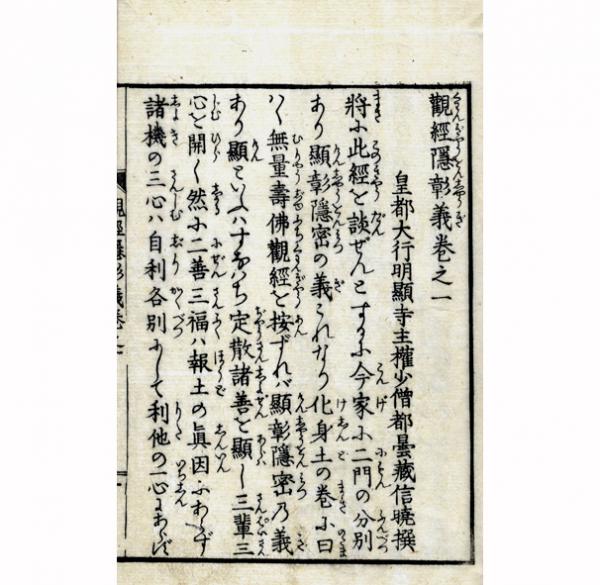 觀經隱彰義巻之一
皇都大行明顯寺主權少僧都曇藏信曉撰
將に此經を談ぜんとするに今家に二門の分別
あり顯彰隱密の義これなり化身土の巻に曰
く無量壽佛觀經を按ずれバ顯彰隱密乃義
あり顯といふハすなハち定散諸善を顯し三輩三
心を開く然に二善三福ハ報土の眞因にあらず
諸機の三心ハ自利各別にして利他の一心にあらず